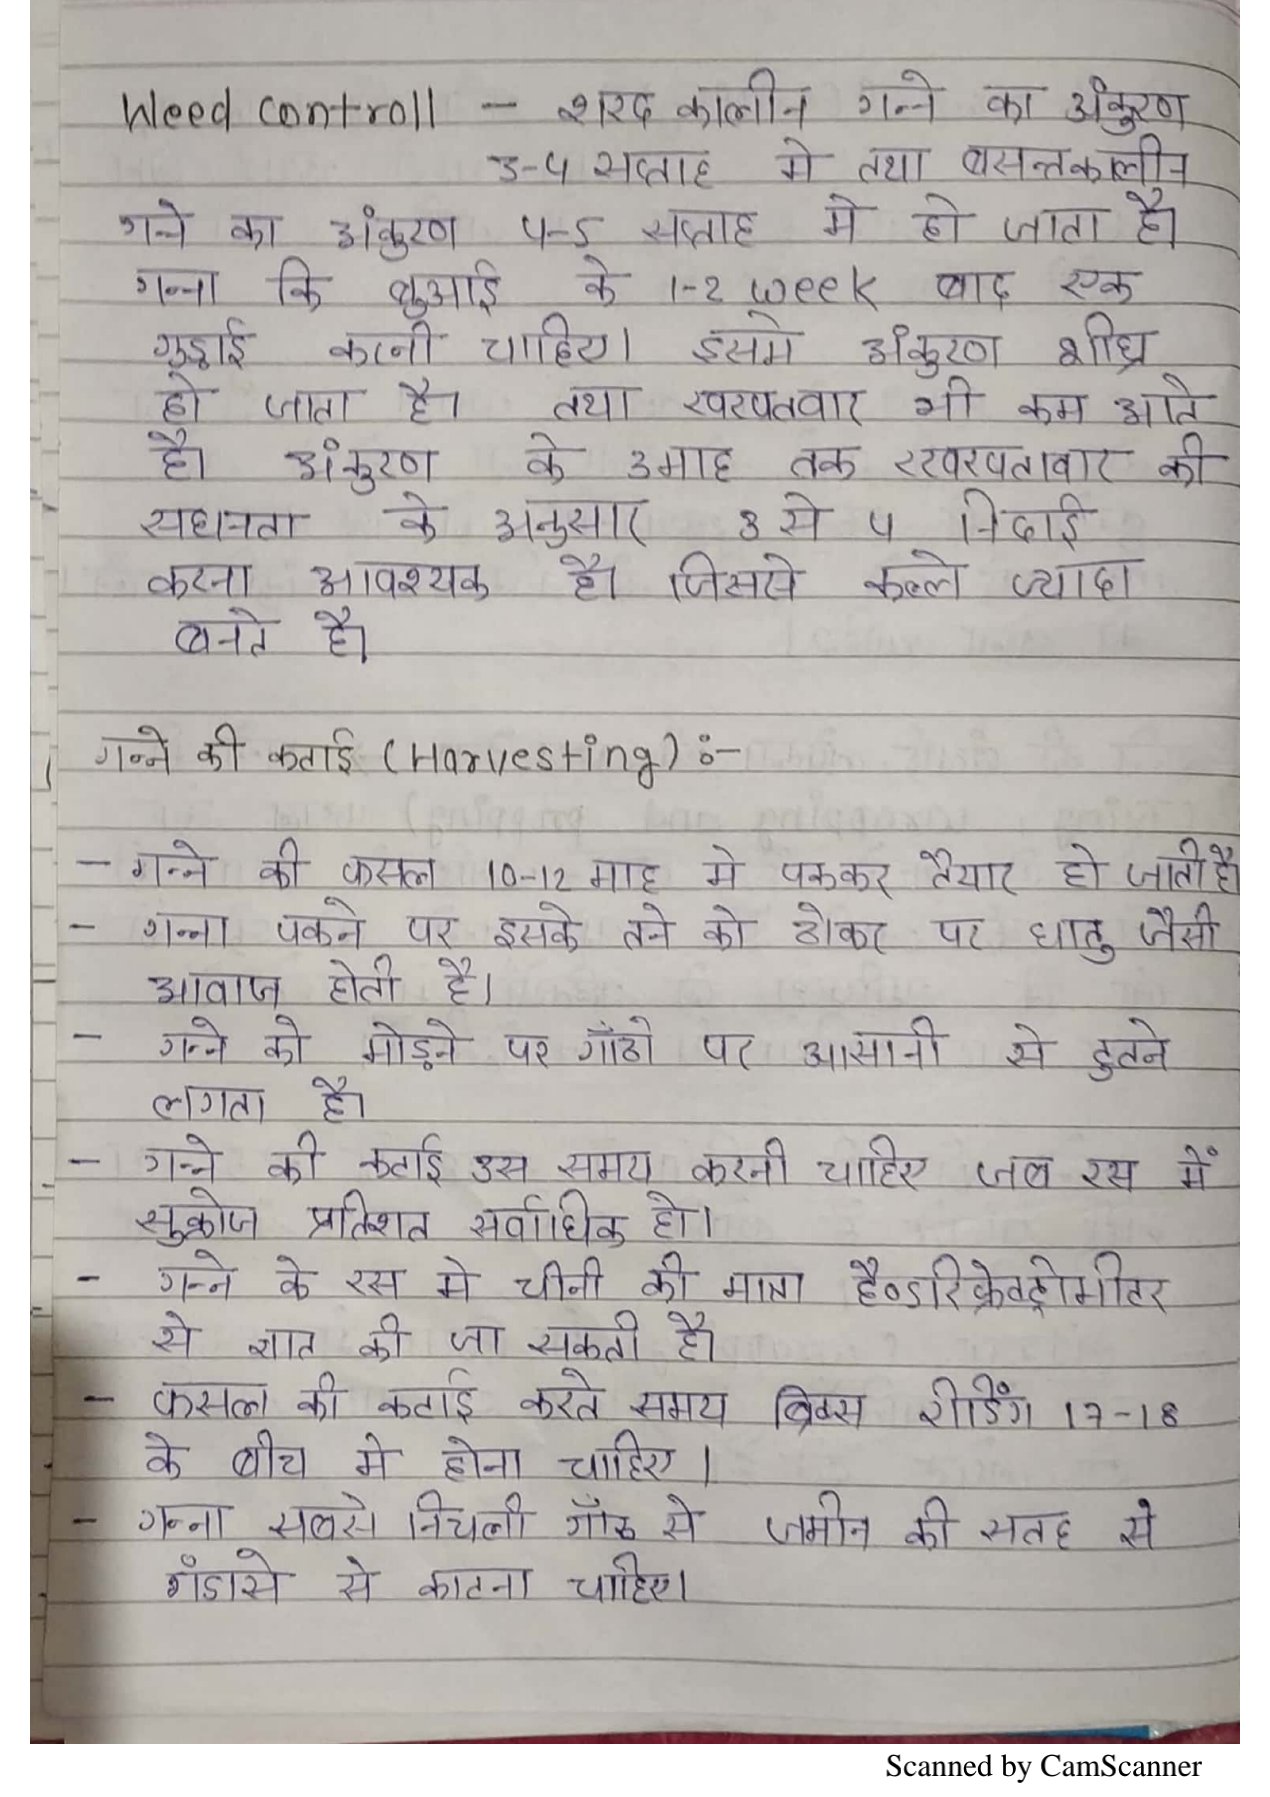 Weed controll - शरद कालीन गन्ने का अंकुरण
3-4 सप्ताह मे तथा बसन्तकालीन
गन्ने का अंकुरण 4-5 सप्ताह मे हो जाता है।
गन्ना कि बुआई के 1-2 week बाद एक
गुड़ाई करनी चाहिए। इसमे अंकुरण शीघ्र
हो जाता है। तथा खरपतवार भी कम आते
है। अंकुरण के 3माह तक खरपतावार की
सघनता के अनुसार 3 से 4 निदाई
करना आवश्यक है। जिससे कल्ले ज्यादा
बनते है।
गन्ने की कटाई (Harvesting) :-
- गन्ने की फसल 10-12 माह मे पककर तैयार हो जाती है
- गन्ना पकने पर इसके तने को ठोकर पर धातु जैसी
आवाज होती है।
- गन्ने को मोड़ने पर गाँठो पर आसानी से टुतने
लगता है।
- गन्ने की कटाई उस समय करनी चाहिए जब रस में
सुक्रोज प्रतिशत सर्वाधिक हो।
- गन्ने के रस मे चीनी की मात्रा हैण्डरिफ्रेक्ट्रोमीटर
से ज्ञात की जा सकती है।
- फसल की कटाई करते समय ब्रिक्स रीडिंग 17-18
के बीच मे होना चाहिए।
- गन्ना सबसे निचली गाँठ से जमीन की सतह से
गँडासे से काटना चाहिए।
Scanned by CamScanner